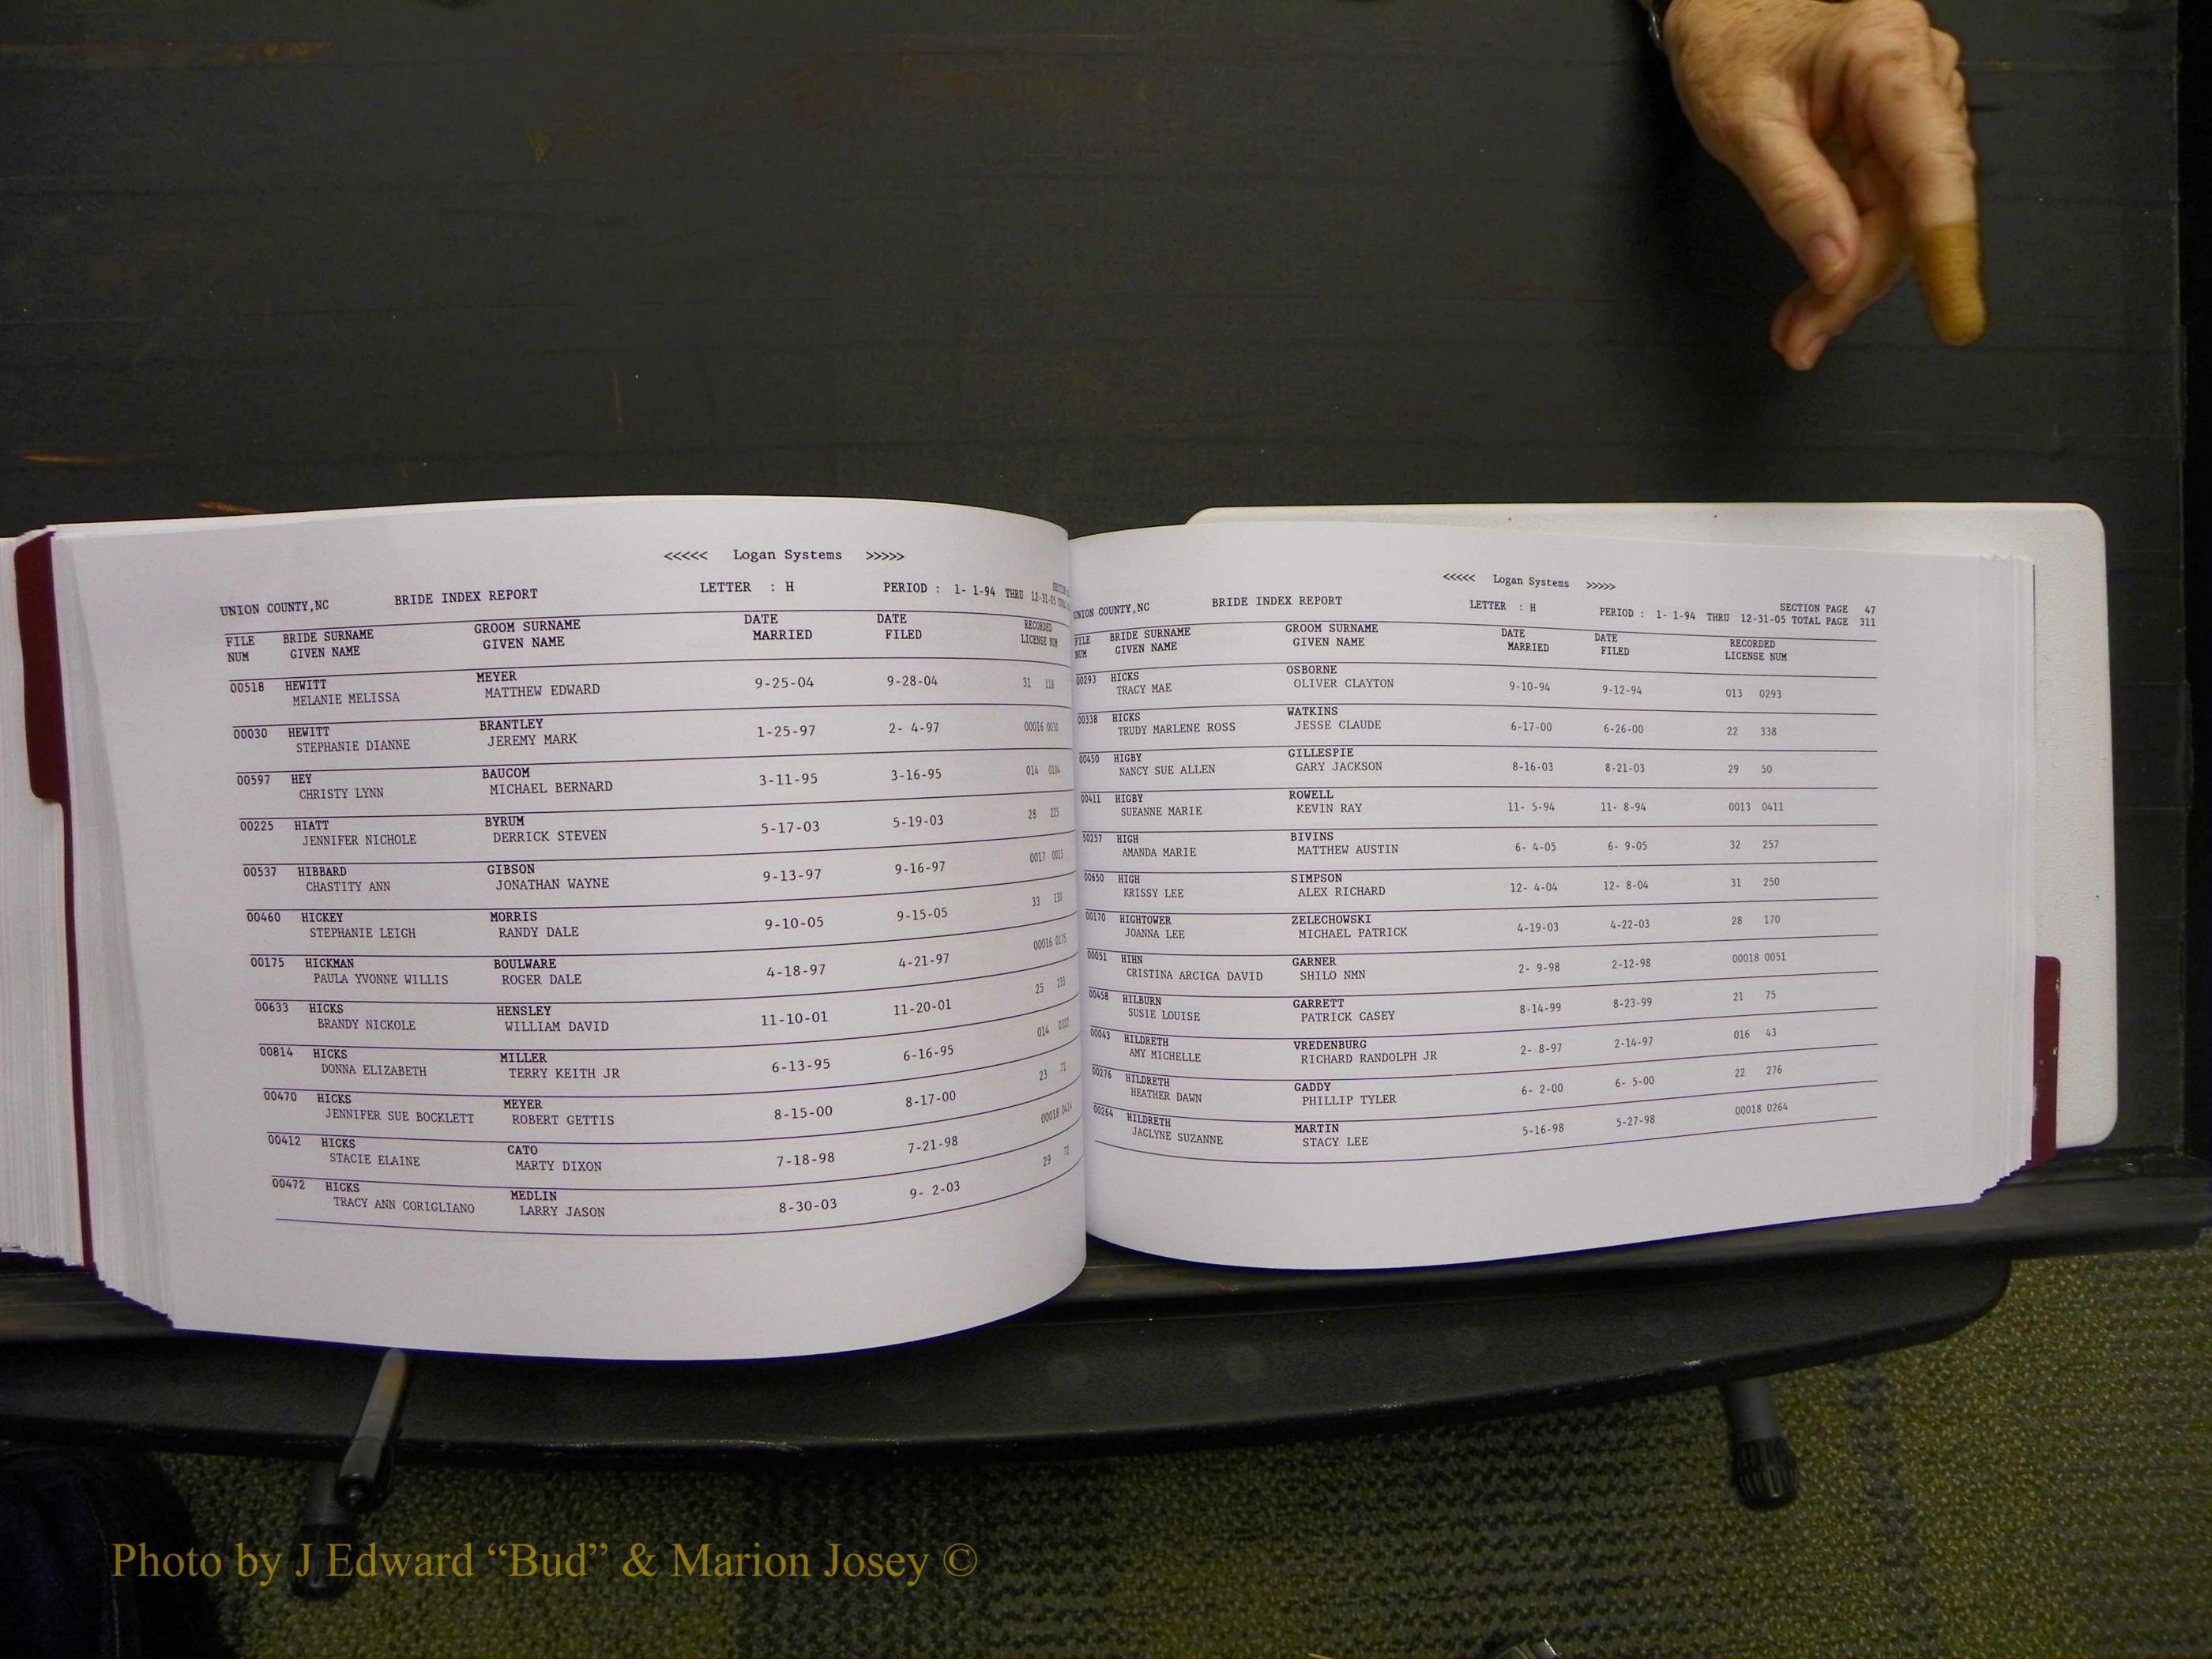 <<<<< Logan Systems >>>>>
UNION COUNTY,NC BRIDE INDEX REPORT LETTER : H PERIOD : 1- 1-94 THRU 12-31-05
FILE BRIDE SURNAME GROOM SURNAME DATE DATE RECORDED
NUM GIVEN NAME GIVEN NAME MARRIED FILED LICENSE NUM
00518 HEWITT MEYER 9-25-04 9-28-04 31 118
MELANIE MELISSA MATTHEW EDWARD
00030 HEWITT BRANTLEY 1-25-97 2- 4-97 00016 0030
STEPHANIE DIANNE JEREMY MARK
00597 HEY BAUCOM 3-11-95 3-16-95 014
CHRISTY LYNN MICHAEL BERNARD
00225 HIATT BYRUM 5-17-03 5-19-03 28 225
JENNIFER NICHOLE DERRICK STEVEN
00537 HIBBARD GIBSON 9-13-97 9-16-97 0017
CHASTITY ANN JONATHAN WAYNE
00460 HICKEY MORRIS 9-10-05 9-15-05 33 130
STEPHANIE LEIGH RANDY DALE
00175 HICKMAN BOULWARE 4-18-97 4-21-97 00016 0175
PAULA YVONNE WILLIS ROGER DALE
00633 HICKS HENSLEY 11-10-01 11-20-01 25 233
BRANDY NICKOLE WILLIAM DAVID
00814 HICKS MILLER 6-13-95 6-16-95 014
DONNA ELIZABETH TERRY KEITH JR
00470 HICKS MEYER 8-15-00 8-17-00 23
JENNIFER SUE BOCKLETT ROBERT GETTIS
00412 HICKS CATO 7-18-98 7-21-98 00018
STACIE ELAINE MARTY DIXON
00472 HICKS MEDLIN 8-30-03 9- 2-03 29
TRACY ANN CORIGLIANO LARRY JASON
<<<<< Logan Systems >>>>>
UNION COUNTY,NC BRIDE INDEX REPORT LETTER : H SECTION PAGE 47
PERIOD : 1- 1-94 THRU 12-31-05 TOTAL PAGE 311
FILE BRIDE SURNAME GROOM SURNAME DATE DATE RECORDED
NUM GIVEN NAME GIVEN NAME MARRIED FILED LICENSE NUM
00293 HICKS OSBORNE 9-10-94 9-12-94 013 0293
TRACY MAE OLIVER CLAYTON
00338 HICKS WATKINS 6-17-00 6-26-00 22 338
TRUDY MARLENE ROSS JESSE CLAUDE
00450 HIGBY GILLESPIE 8-16-03 8-21-03 29 50
NANCY SUE ALLEN GARY JACKSON
00411 HIGBY ROWELL 11- 5-94 11- 8-94 0013 0411
SUEANNE MARIE KEVIN RAY
50257 HIGH BIVINS 6- 4-05 6- 9-05 32 257
AMANDA MARIE MATTHEW AUSTIN
00650 HIGH SIMPSON 12- 4-04 12- 8-04 31 250
KRISSY LEE ALEX RICHARD
00170 HIGHTOWER ZELECHOWSKI 4-19-03 4-22-03 28 170
JOANNA LEE MICHAEL PATRICK
00051 HIHN GARNER 2- 9-98 2-12-98 00018 0051
CRISTINA ARCIGA DAVID SHILO NMN
00458 HILBURN GARRETT 8-14-99 8-23-99 21 75
SUSIE LOUISE PATRICK CASEY
00043 HILDRETH VREDENBURG 2- 8-97 2-14-97 016 43
AMY MICHELLE RICHARD RANDOLPH JR
00276 HILDRETH GADDY 6- 2-00 6- 5-00 22 276
HEATHER DAWN PHILLIP TYLER
00264 HILDRETH MARTIN 5-16-98 5-27-98 00018 0264
JACLYNE SUZANNE STACY LEE
Photo by J Edward “Bud” & Marion Josey ©